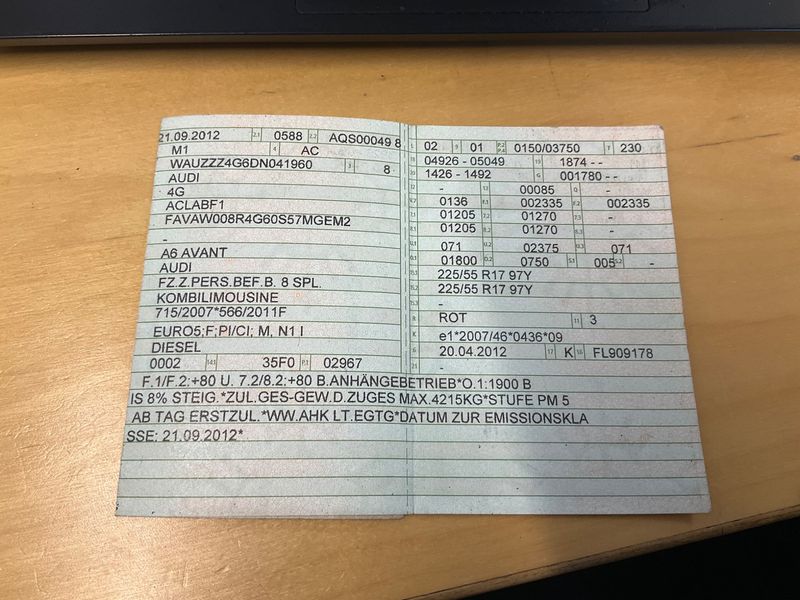 21.09.2012 2.1 0588 2.2 AQS00049 8
M1 4 AC
WAUZZZ4G6DN041960 3 8
AUDI
4G
ACLABF1
FAVAW008R4G60S57MGEM2
-
A6 AVANT
AUDI
FZ.Z.PERS.BEF.B. 8 SPL.
KOMBILIMOUSINE
715/2007*566/2011F
EURO5;F;PI/CI; M, N1 I
DIESEL
0002 14.1 35F0 P.1 02967
02 9 01 P.2 P.4 0150/03750 T 230
18 04926 - 05049 19 1874 - -
20 1426 - 1492 G 001780 - -
12 - 13 00085 Q -
V.7 0136 F.1 002335 F.2 002335
7.1 01205 7.2 01270 7.3 -
8.1 01205 8.2 01270 8.3 -
U.1 071 U.2 02375 U.3 071
O.1 01800 O.2 0750 S.1 005 S.2 -
15.1 225/55 R17 97Y
15.2 225/55 R17 97Y
15.3 -
R ROT 11 3
K e1*2007/46*0436*09
6 20.04.2012 17 K 16 FL909178
21 -
F.1/F.2:+80 U. 7.2/8.2:+80 B.ANHÄNGEBETRIEB*O.1:1900 B
IS 8% STEIG.*ZUL.GES-GEW.D.ZUGES MAX.4215KG*STUFE PM 5
AB TAG ERSTZUL.*WW.AHK LT.EGTG*DATUM ZUR EMISSIONSKLA
SSE: 21.09.2012*